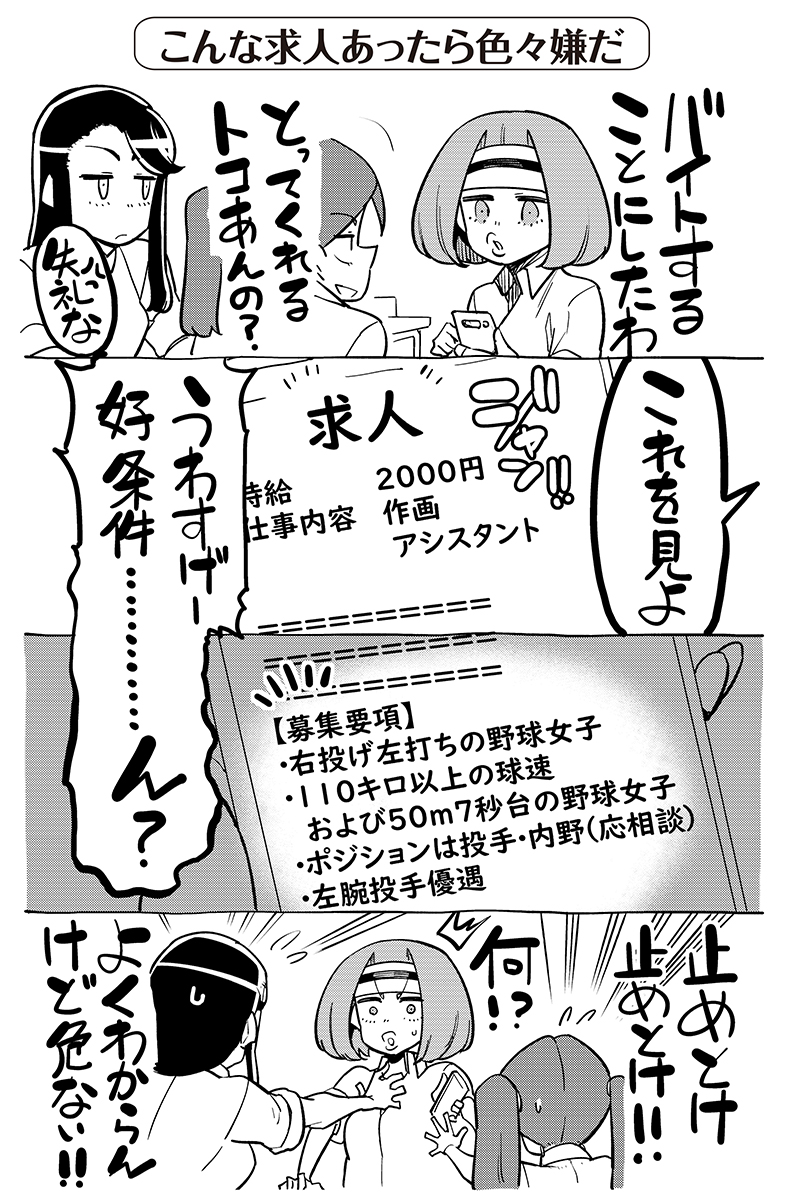 こんな求人あったら色々嫌だ
バイトする
ことにしたわ
とってくれる
トコあんの?
失礼な
これを見よ
ジャン!!
求人
時給 2000円
仕事内容 作画
アシスタント
==========
うわすげー
好条件………ん?
==========
==========
【募集要項】
・右投げ左打ちの野球女子
・110キロ以上の球速
および50m7秒台の野球女子
・ポジションは投手・内野(応相談)
・左腕投手優遇
止めとけ
止めとけ!!
何!?
よくわからん
けど危ない!!